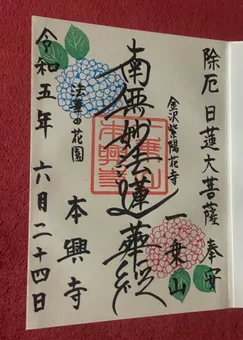 除厄 日蓮大菩薩 奉安
金沢紫陽花寺 一乗山
南無妙法蓮華経
法華の花園 本興寺
令和五年 六月二十四日